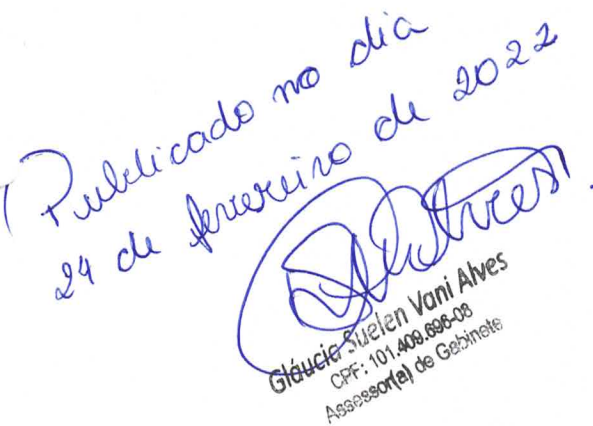 Publicado no dia
24 de fevereiro de 2022
Gláucia Suelen Vani Alves
CPF: 101.409.696-08
Assessor(a) de Gabinete